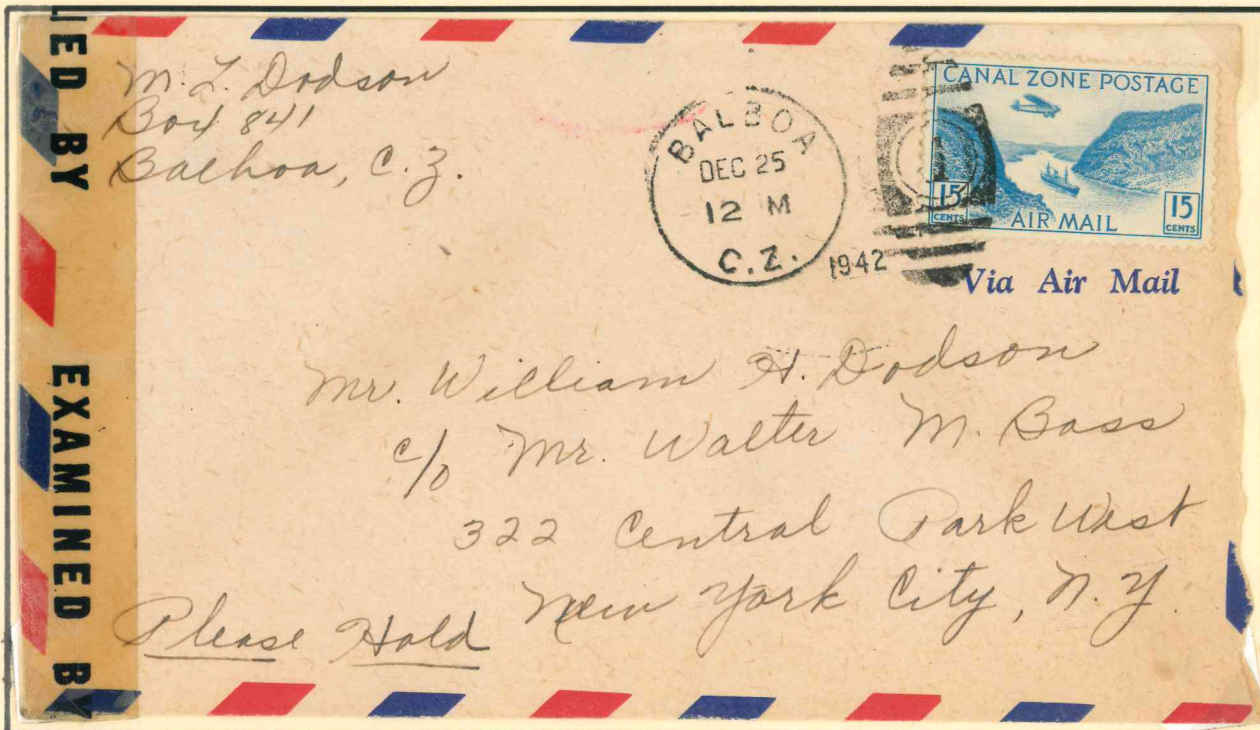 M. L. Dodson
Box 841
Balboa, C.Z.
BALBOA
DEC 25
12 M
C. Z.
1942
1
CANAL ZONE POSTAGE
15 CENTS
AIR MAIL
15 CENTS
Via Air Mail
Mr. William H. Dodson
c/o Mr. Walter M. Bass
322 Central Park West
New York City, N.Y.
Please Hold
BY
EXAMINED BY